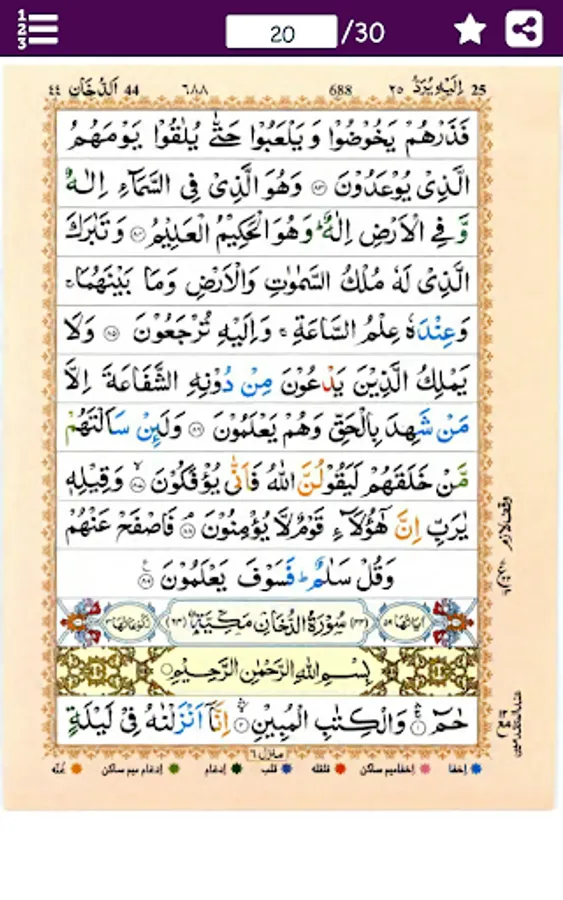 1
2
3
20 /30
25 اِلَیْہِ یُرَدُّ ۲۵ 688 ٦٨٨ 44 اَلدُّخَان ٤٤
فَذَرْهُمْ يَخُوْضُوْا وَ يَلْعَبُوْا حَتّٰى يُلٰقُوْا يَوْمَهُمُ
الَّذِىْ يُوْعَدُوْنَ ۝۸۳ وَهُوَ الَّذِىْ فِى السَّمَآءِ اِلٰهٌ
وَّ فِى الْاَرْضِ اِلٰهٌ ؕ وَهُوَ الْحَكِيْمُ الْعَلِيْمُ ۝۸۴ وَ تَبٰرَكَ
الَّذِىْ لَهٗ مُلْكُ السَّمٰوٰتِ وَالْاَرْضِ وَمَا بَيْنَهُمَا ۚ
وَعِنْدَهٗ عِلْمُ السَّاعَةِ ۚ وَاِلَيْهِ تُرْجَعُوْنَ ۝۸۵ وَلَا
يَمْلِكُ الَّذِيْنَ يَدْعُوْنَ مِنْ دُوْنِهِ الشَّفَاعَةَ اِلَّا
مَنْ شَهِدَ بِالْحَقِّ وَهُمْ يَعْلَمُوْنَ ۝۸۶ وَلَئِنْ سَاَلْتَهُمْ
مَّنْ خَلَقَهُمْ لَيَقُوْلُنَّ اللّٰهُ فَاَنّٰى يُؤْفَكُوْنَ ۝۸۷ وَقِيْلِهٖ
يٰرَبِّ اِنَّ هٰٓؤُلَآءِ قَوْمٌ لَّا يُؤْمِنُوْنَ ۝۸۸ فَاصْفَحْ عَنْهُمْ
وَقُلْ سَلٰمٌ ؕ فَسَوْفَ يَعْلَمُوْنَ ۝۸۹
اٰيَاتُهَا ٥٩ سُوْرَةُ الدُّخَانِ مَكِّيَّةٌ رُكُوْعَاتُهَا ٣
بِسْمِ اللّٰهِ الرَّحْمٰنِ الرَّحِيْمِ
حٰمٓ ۝۱ وَالْكِتٰبِ الْمُبِيْنِ ۝۲ اِنَّآ اَنْزَلْنٰهُ فِىْ لَيْلَةٍ
منزل ٦
اخفا اخفا میم ساکن قلقلہ قلب ادغام ادغام میم ساکن غنّہ
وقف لازم